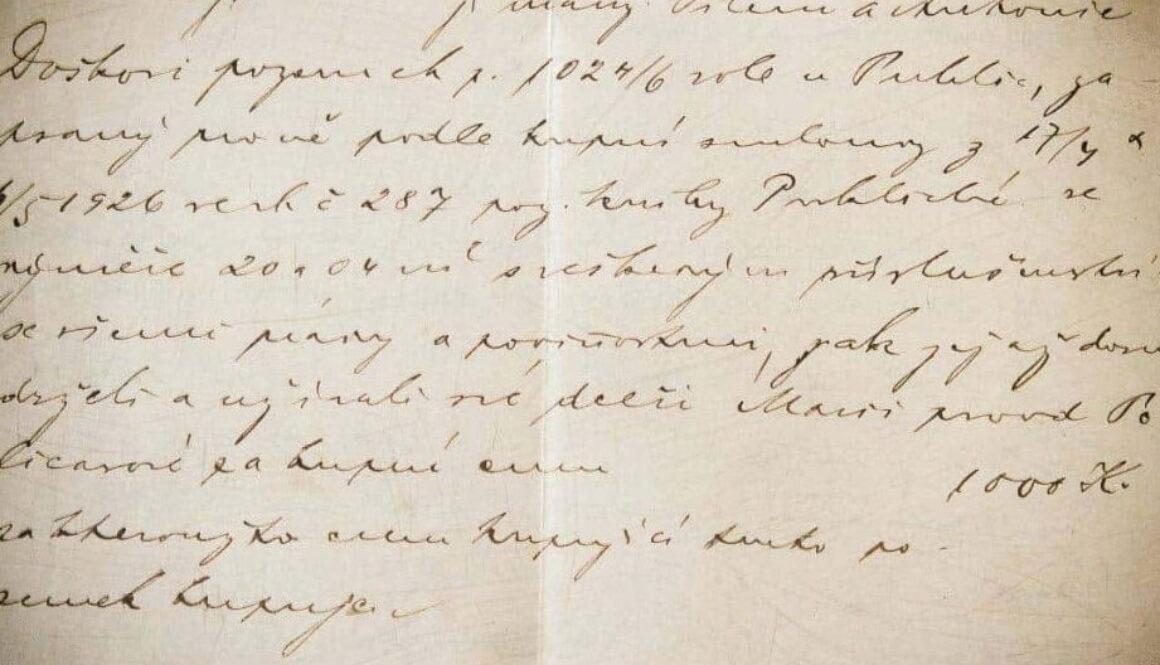 Doškovi pozemek p. 1024/6 role u Puklic, za-
psaný prvně podle kupní smlouvy z 17/4 a
6/5 1926 resk č 287 poz. knihy Puklické se
výměře 20 a 04 m² s veškerým příslušenství
se všemi právy a povinnostmi, jak jej až dosu
drželi a užívali své dceři Marii provd Po
licarové za kupní cenu
1000 K.
za kteroužto cenu kupující tento po-
zemek kupuje